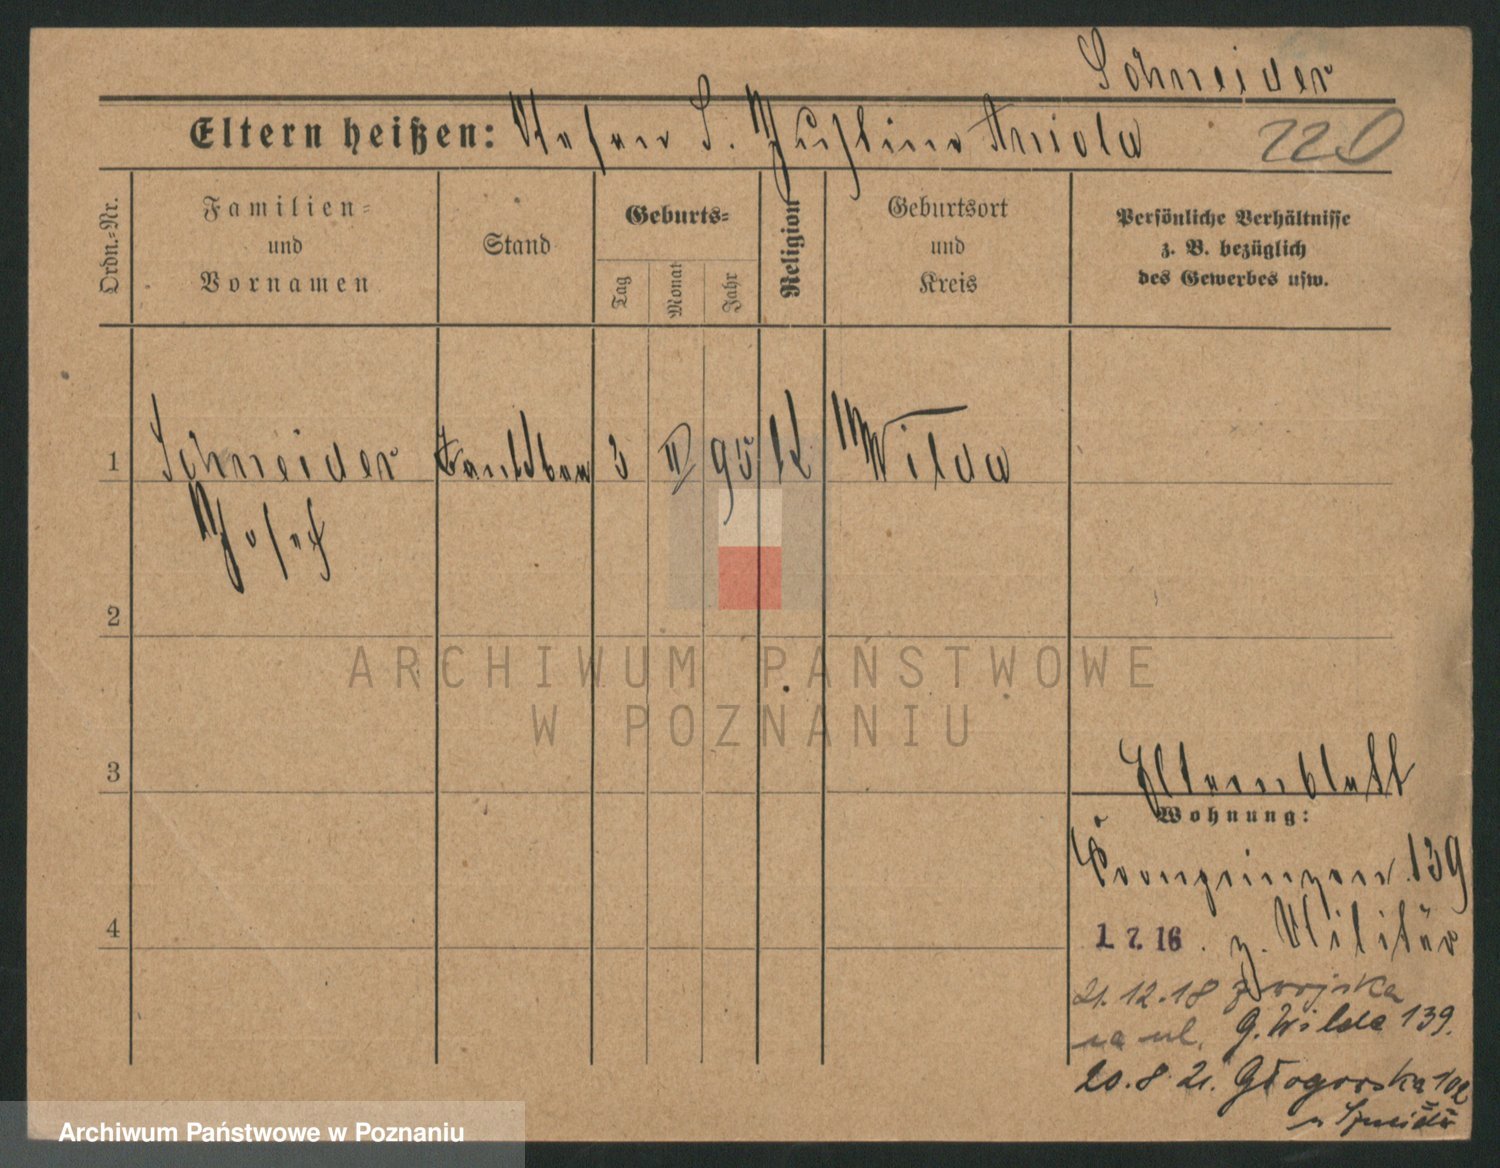 Schneider
Eltern heißen: S. Aniola
220
Ordn.-Nr.
Familien-
und
Vornamen
Stand
Geburts-
Tag
Monat
Jahr
Religion
Geburtsort
und
Kreis
Persönliche Verhältnisse
z. B. bezüglich
des Gewerbes usw.
1 Schneider 3 II 95 Wilda
Josef
2
3
4
Elternblatt
Wohnung:
Kronprinzen 139
1. 7. 16. z. Militär
21.12.18 z wojska
na ul. G. Wilda 139.
20.8.21. Głogowska 102
ARCHIWUM PAŃSTWOWE
W POZNANIU
Archiwum Państwowe w Poznaniu